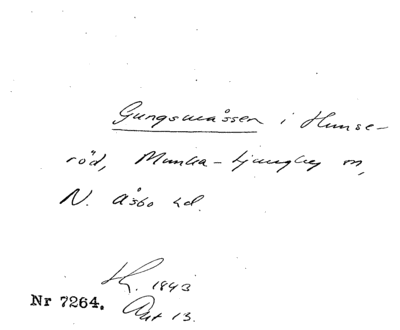 Gungsmåssen i Hunse-
röd, Munka-Ljungby sn,
N. Åsbo hd.
H. 1843
Nr 7264. Akt 13.